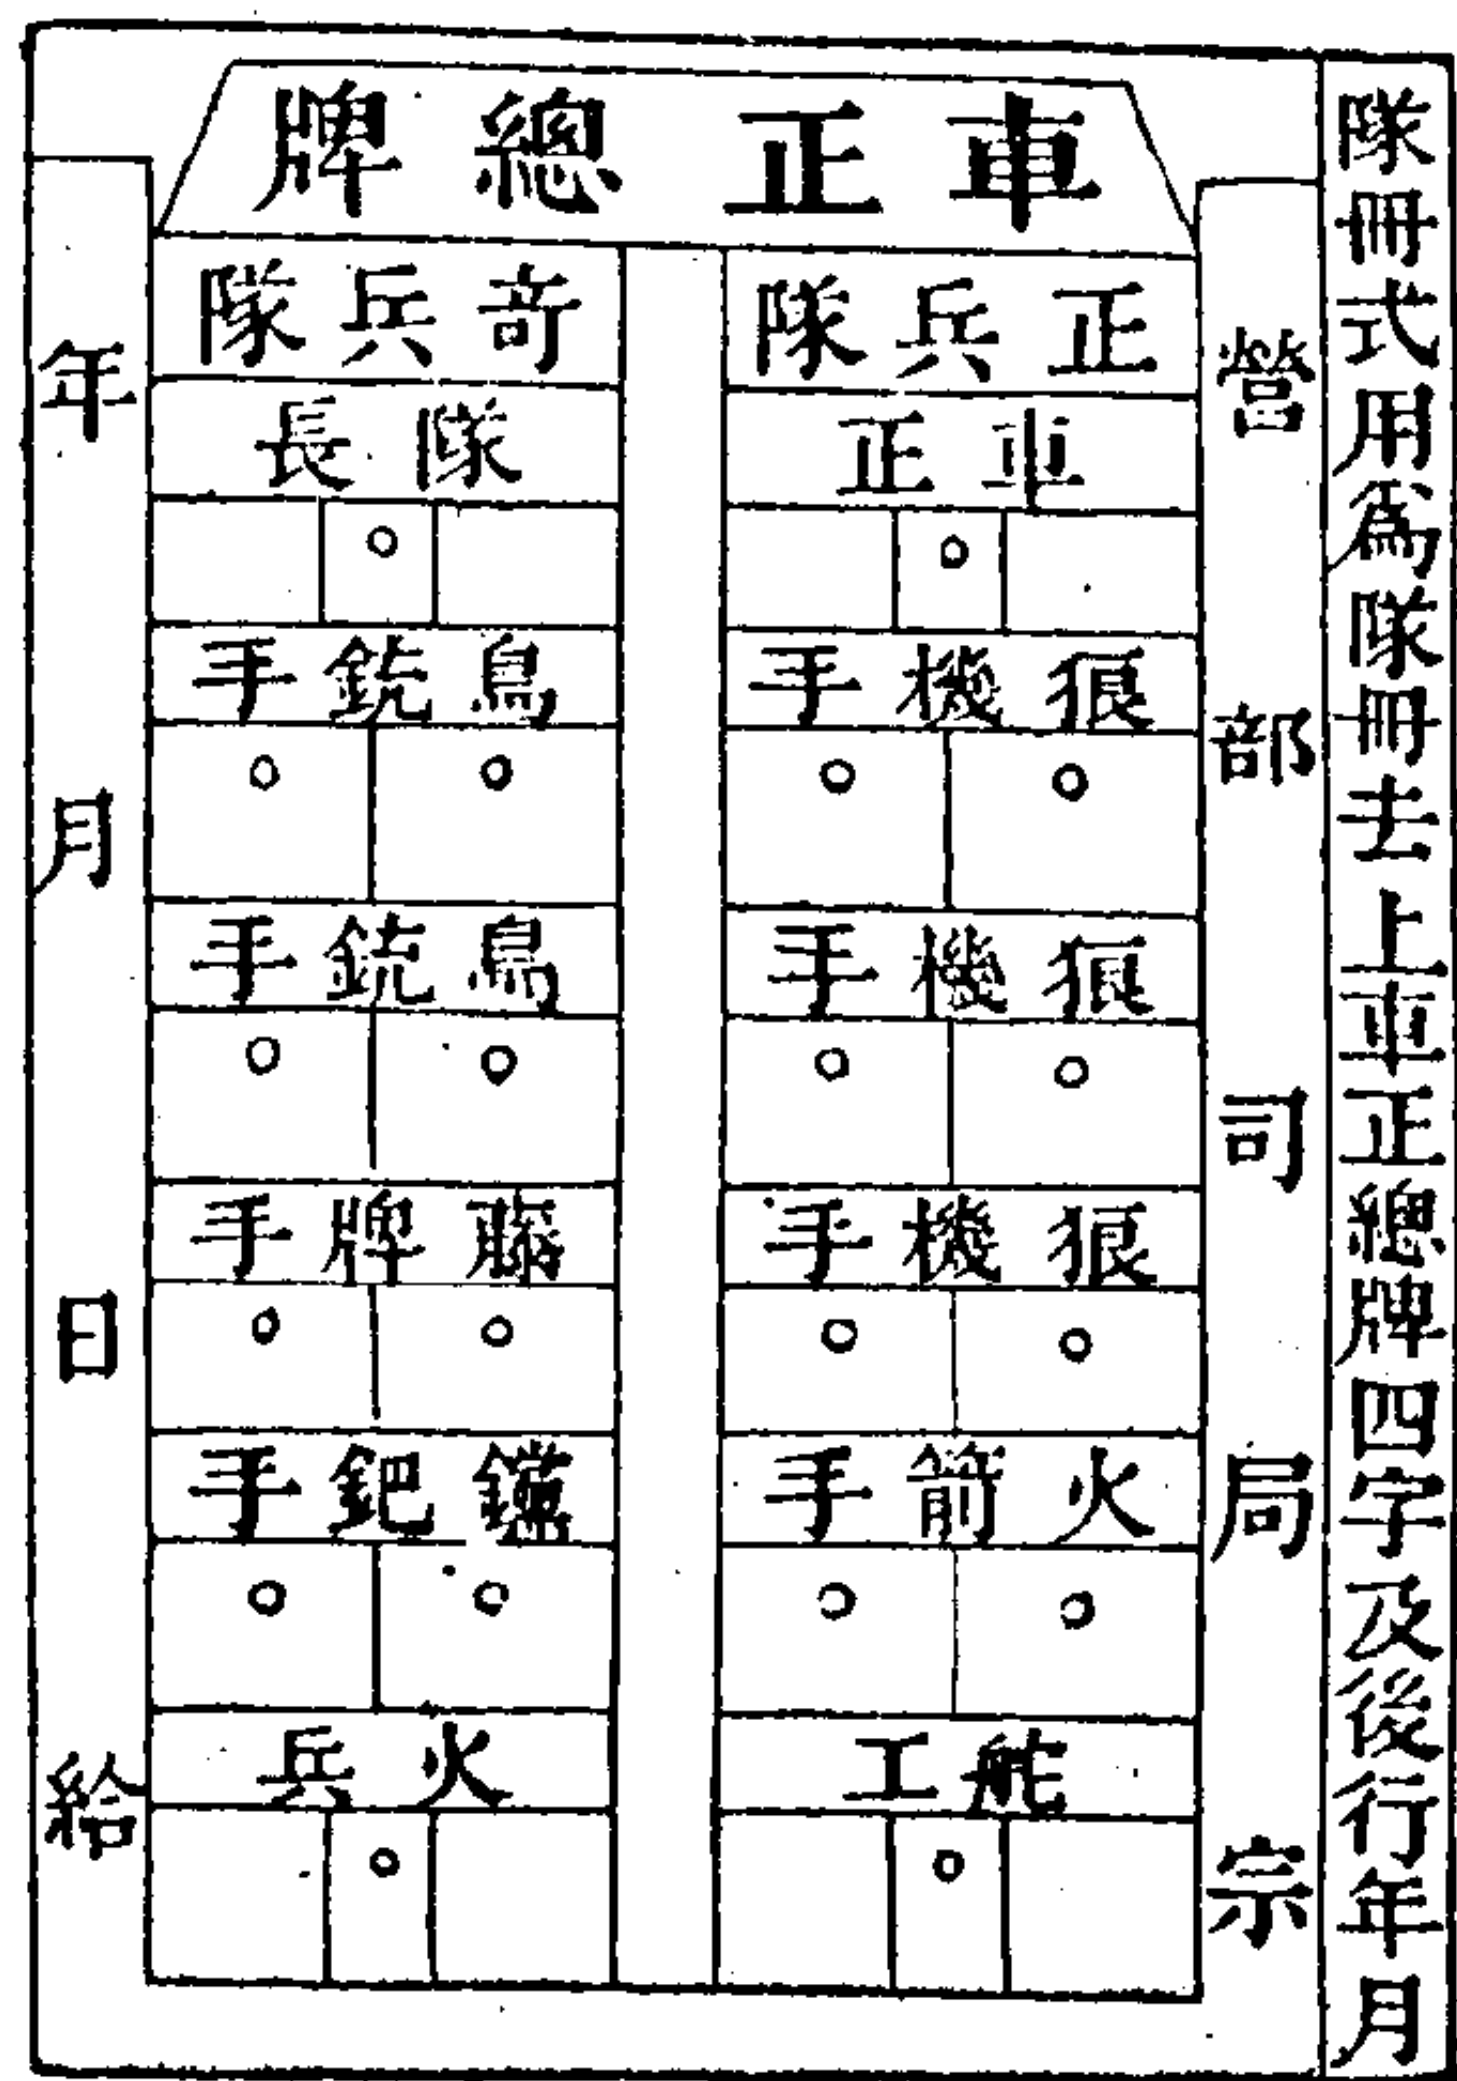 隊冊式用爲隊冊去上車正總牌四字及後行年月
營部司局宗
車正總牌
正兵隊
車正
狼機手
狼機手
狼機手
火箭手
舵工
奇兵隊
隊長
鳥銃手
鳥銃手
藤牌手
鎲鈀手
火兵
年月日給